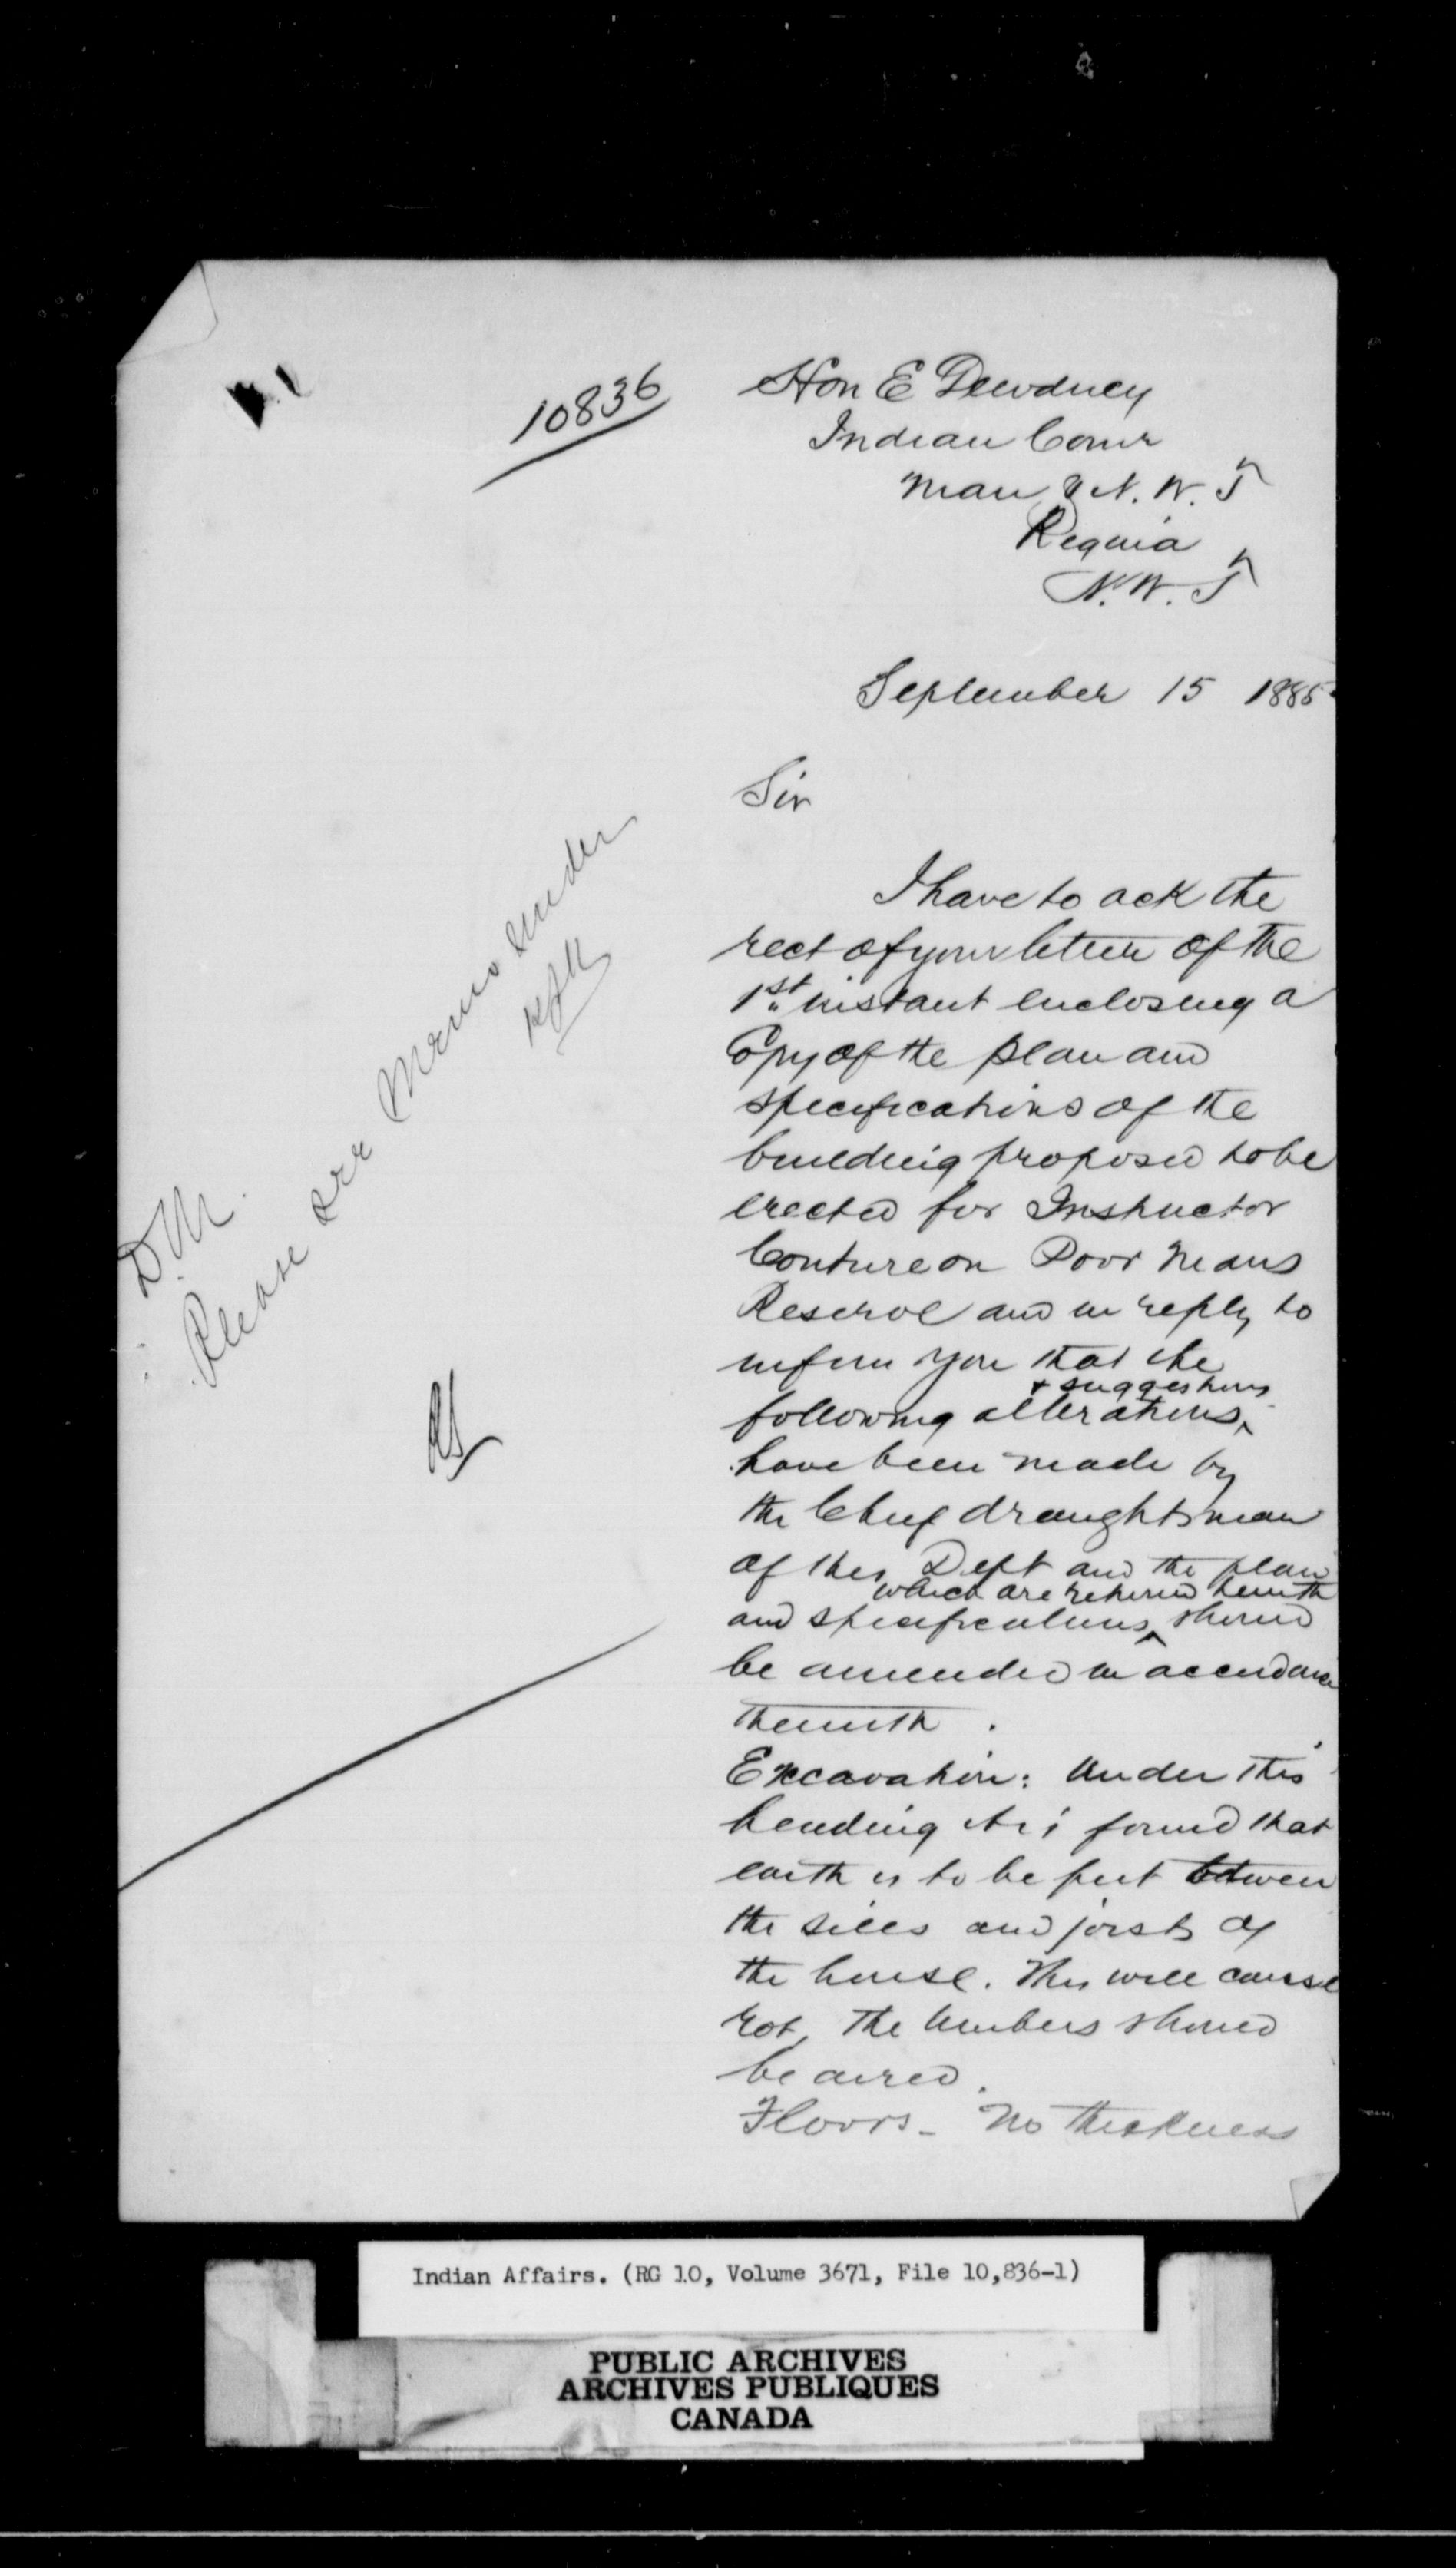 10836
Hon E Dewdney
Indian Comr
Man & N.W.T
Regina
N.W.T
September 15 1885
Sir
I have to ack the
rect of your letter of the
1st instant enclosing a
Copy of the plan and
specifications of the
building proposed to be
erected for Instructor
Couture on Poor Mans
Reserve and in reply to
inform you that the
following alterations & suggestions
have been made by
the Chief draughtsman
of this Dept and the plan
and specifications which are returned herewith should
be amended in accordance
therewith.
Excavation: Under this
heading it is found that
earth is to be put between
the sills and joists of
the house. This will cause
rot, The timbers should
be aired.
Floors - No thickness
D.M.
Please see Memo under
Indian Affairs. (RG 10, Volume 3671, File 10,836-1)
PUBLIC ARCHIVES
ARCHIVES PUBLIQUES
CANADA